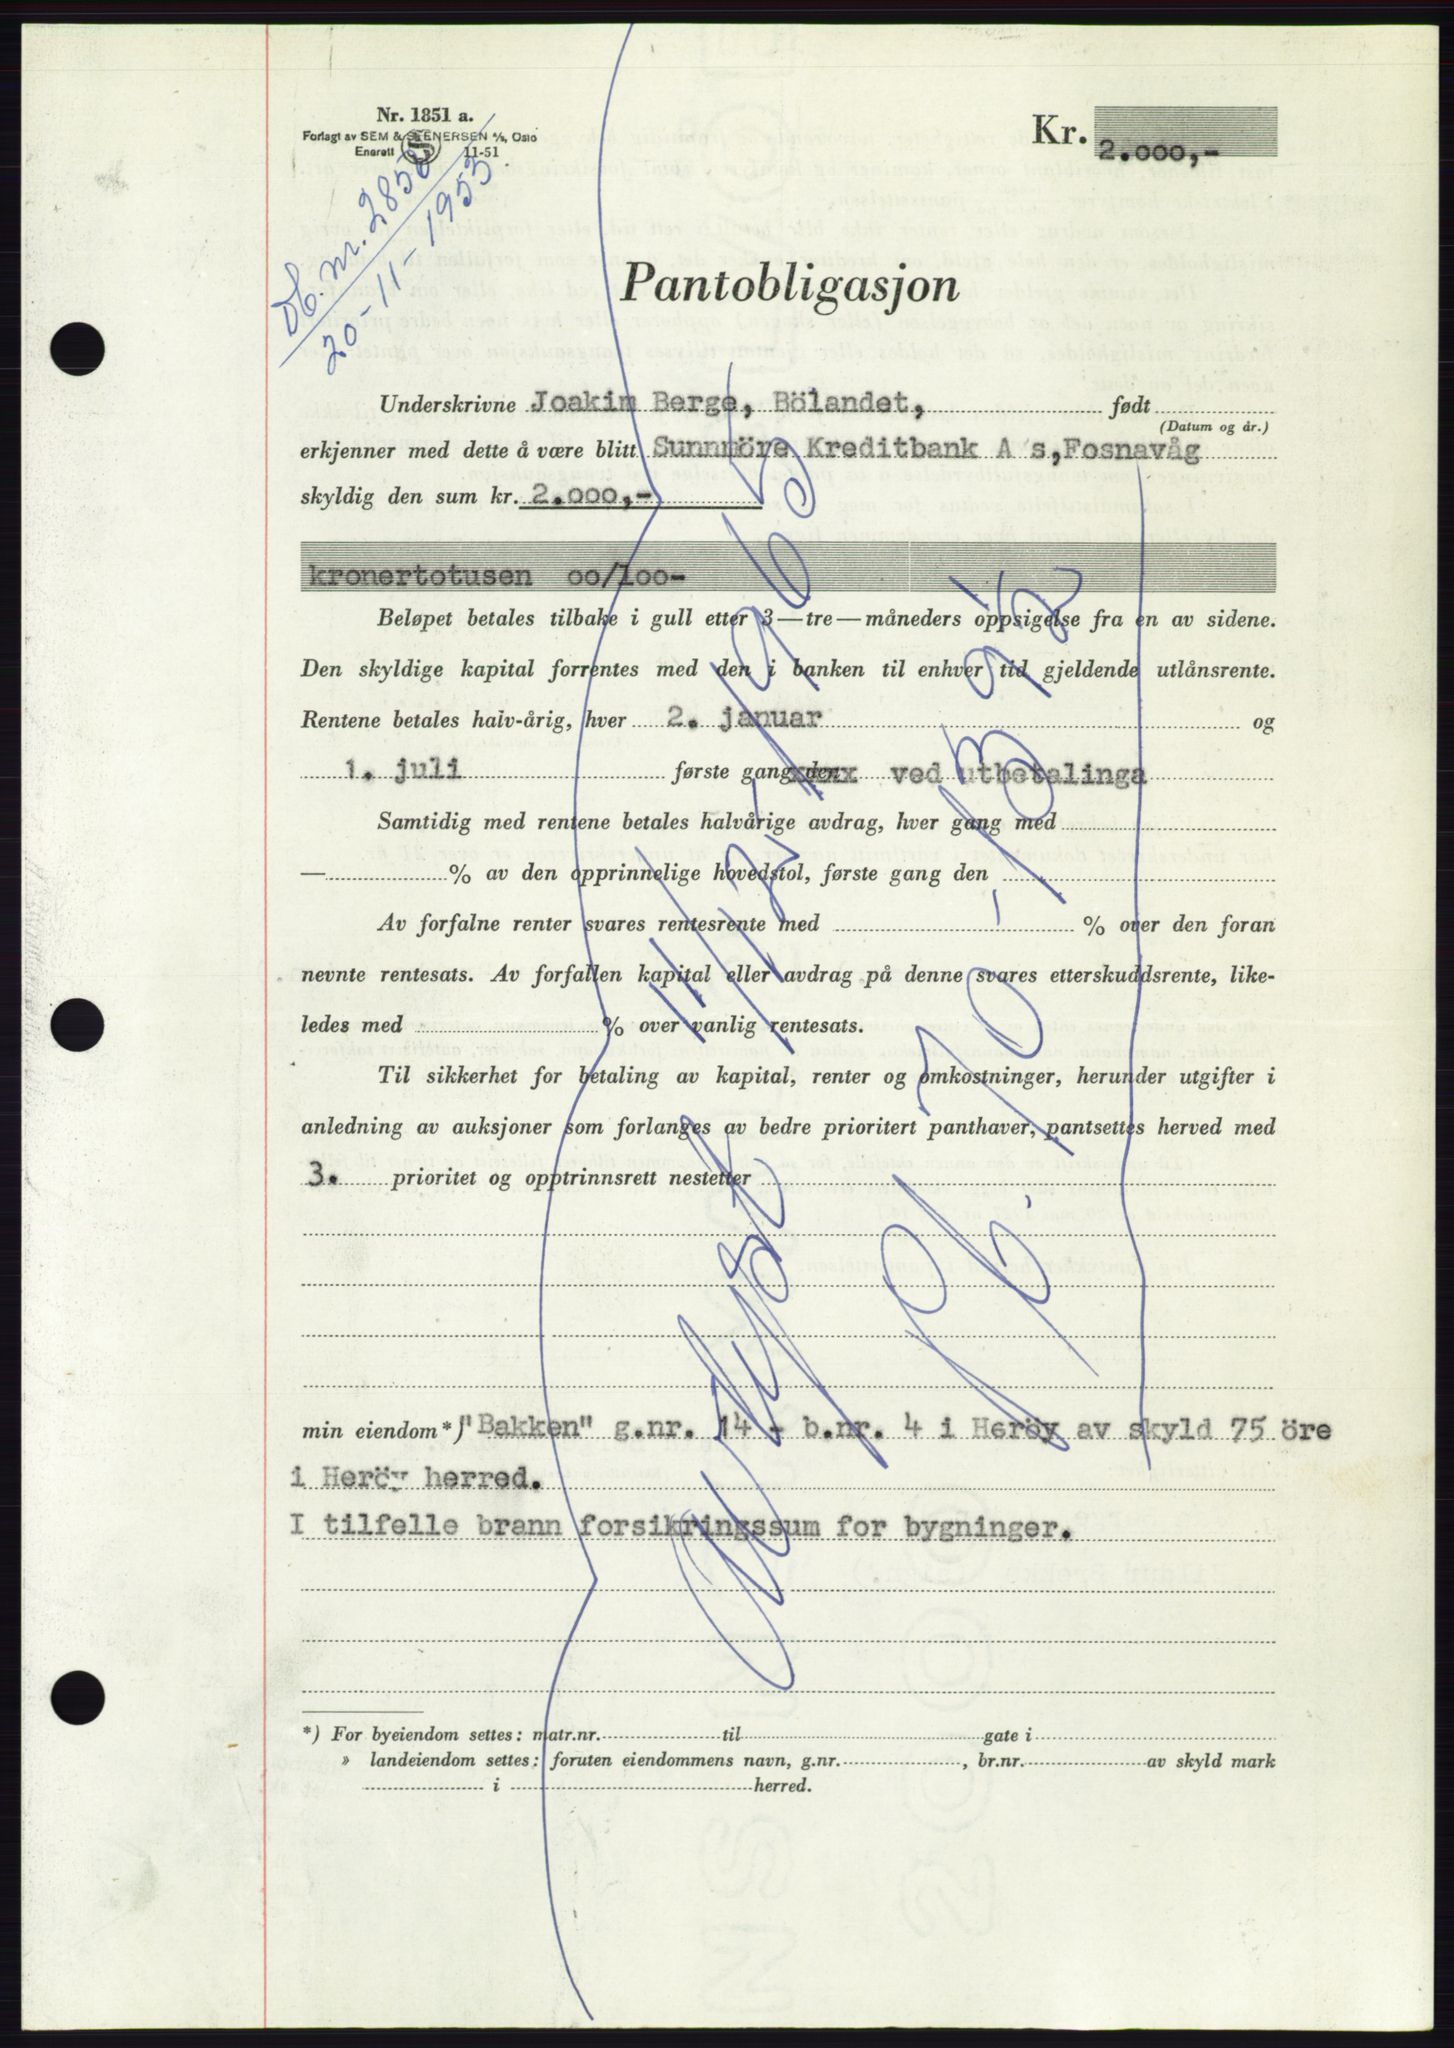 Nr. 1851 a.
Forlagt av SEM & STENERSEN A/S, Oslo
Enerett 11-51
Kr. 2.000,-
Db. nr. 2858
20-11-1953
Pantobligasjon
Underskrivne Joakim Berge, Bölandet, født
(Datum og år.)
erkjenner med dette å være blitt Sunnmöre Kreditbank A s, Fosnavåg
skyldig den sum kr. 2.000,-
kronertotusen oo/loo-
Beløpet betales tilbake i gull etter 3—tre—måneders oppsigelse fra en av sidene.
Den skyldige kapital forrentes med den i banken til enhver tid gjeldende utlånsrente.
Rentene betales halv-årig, hver 2. januar og
1. juli første gang den ved utbetalinga
Samtidig med rentene betales halvårige avdrag, hver gang med
— % av den opprinnelige hovedstol, første gang den
Av forfalne renter svares rentesrente med % over den foran
nevnte rentesats. Av forfallen kapital eller avdrag på denne svares etterskuddsrente, like-
ledes med % over vanlig rentesats.
Til sikkerhet for betaling av kapital, renter og omkostninger, herunder utgifter i
anledning av auksjoner som forlanges av bedre prioritert panthaver, pantsettes herved med
3. prioritet og opptrinnsrett nestetter
min eiendom*) "Bakken" g.nr. 14 - b.nr. 4 i Heröy av skyld 75 öre
i Heröy herred.
I tilfelle brann forsikringssum for bygninger.
Avlyst 11/12 1965
*) For byeiendom settes: matr.nr. til gate i
» landeiendom settes: foruten eiendommens navn, g.nr. , br.nr. av skyld mark
i herred.